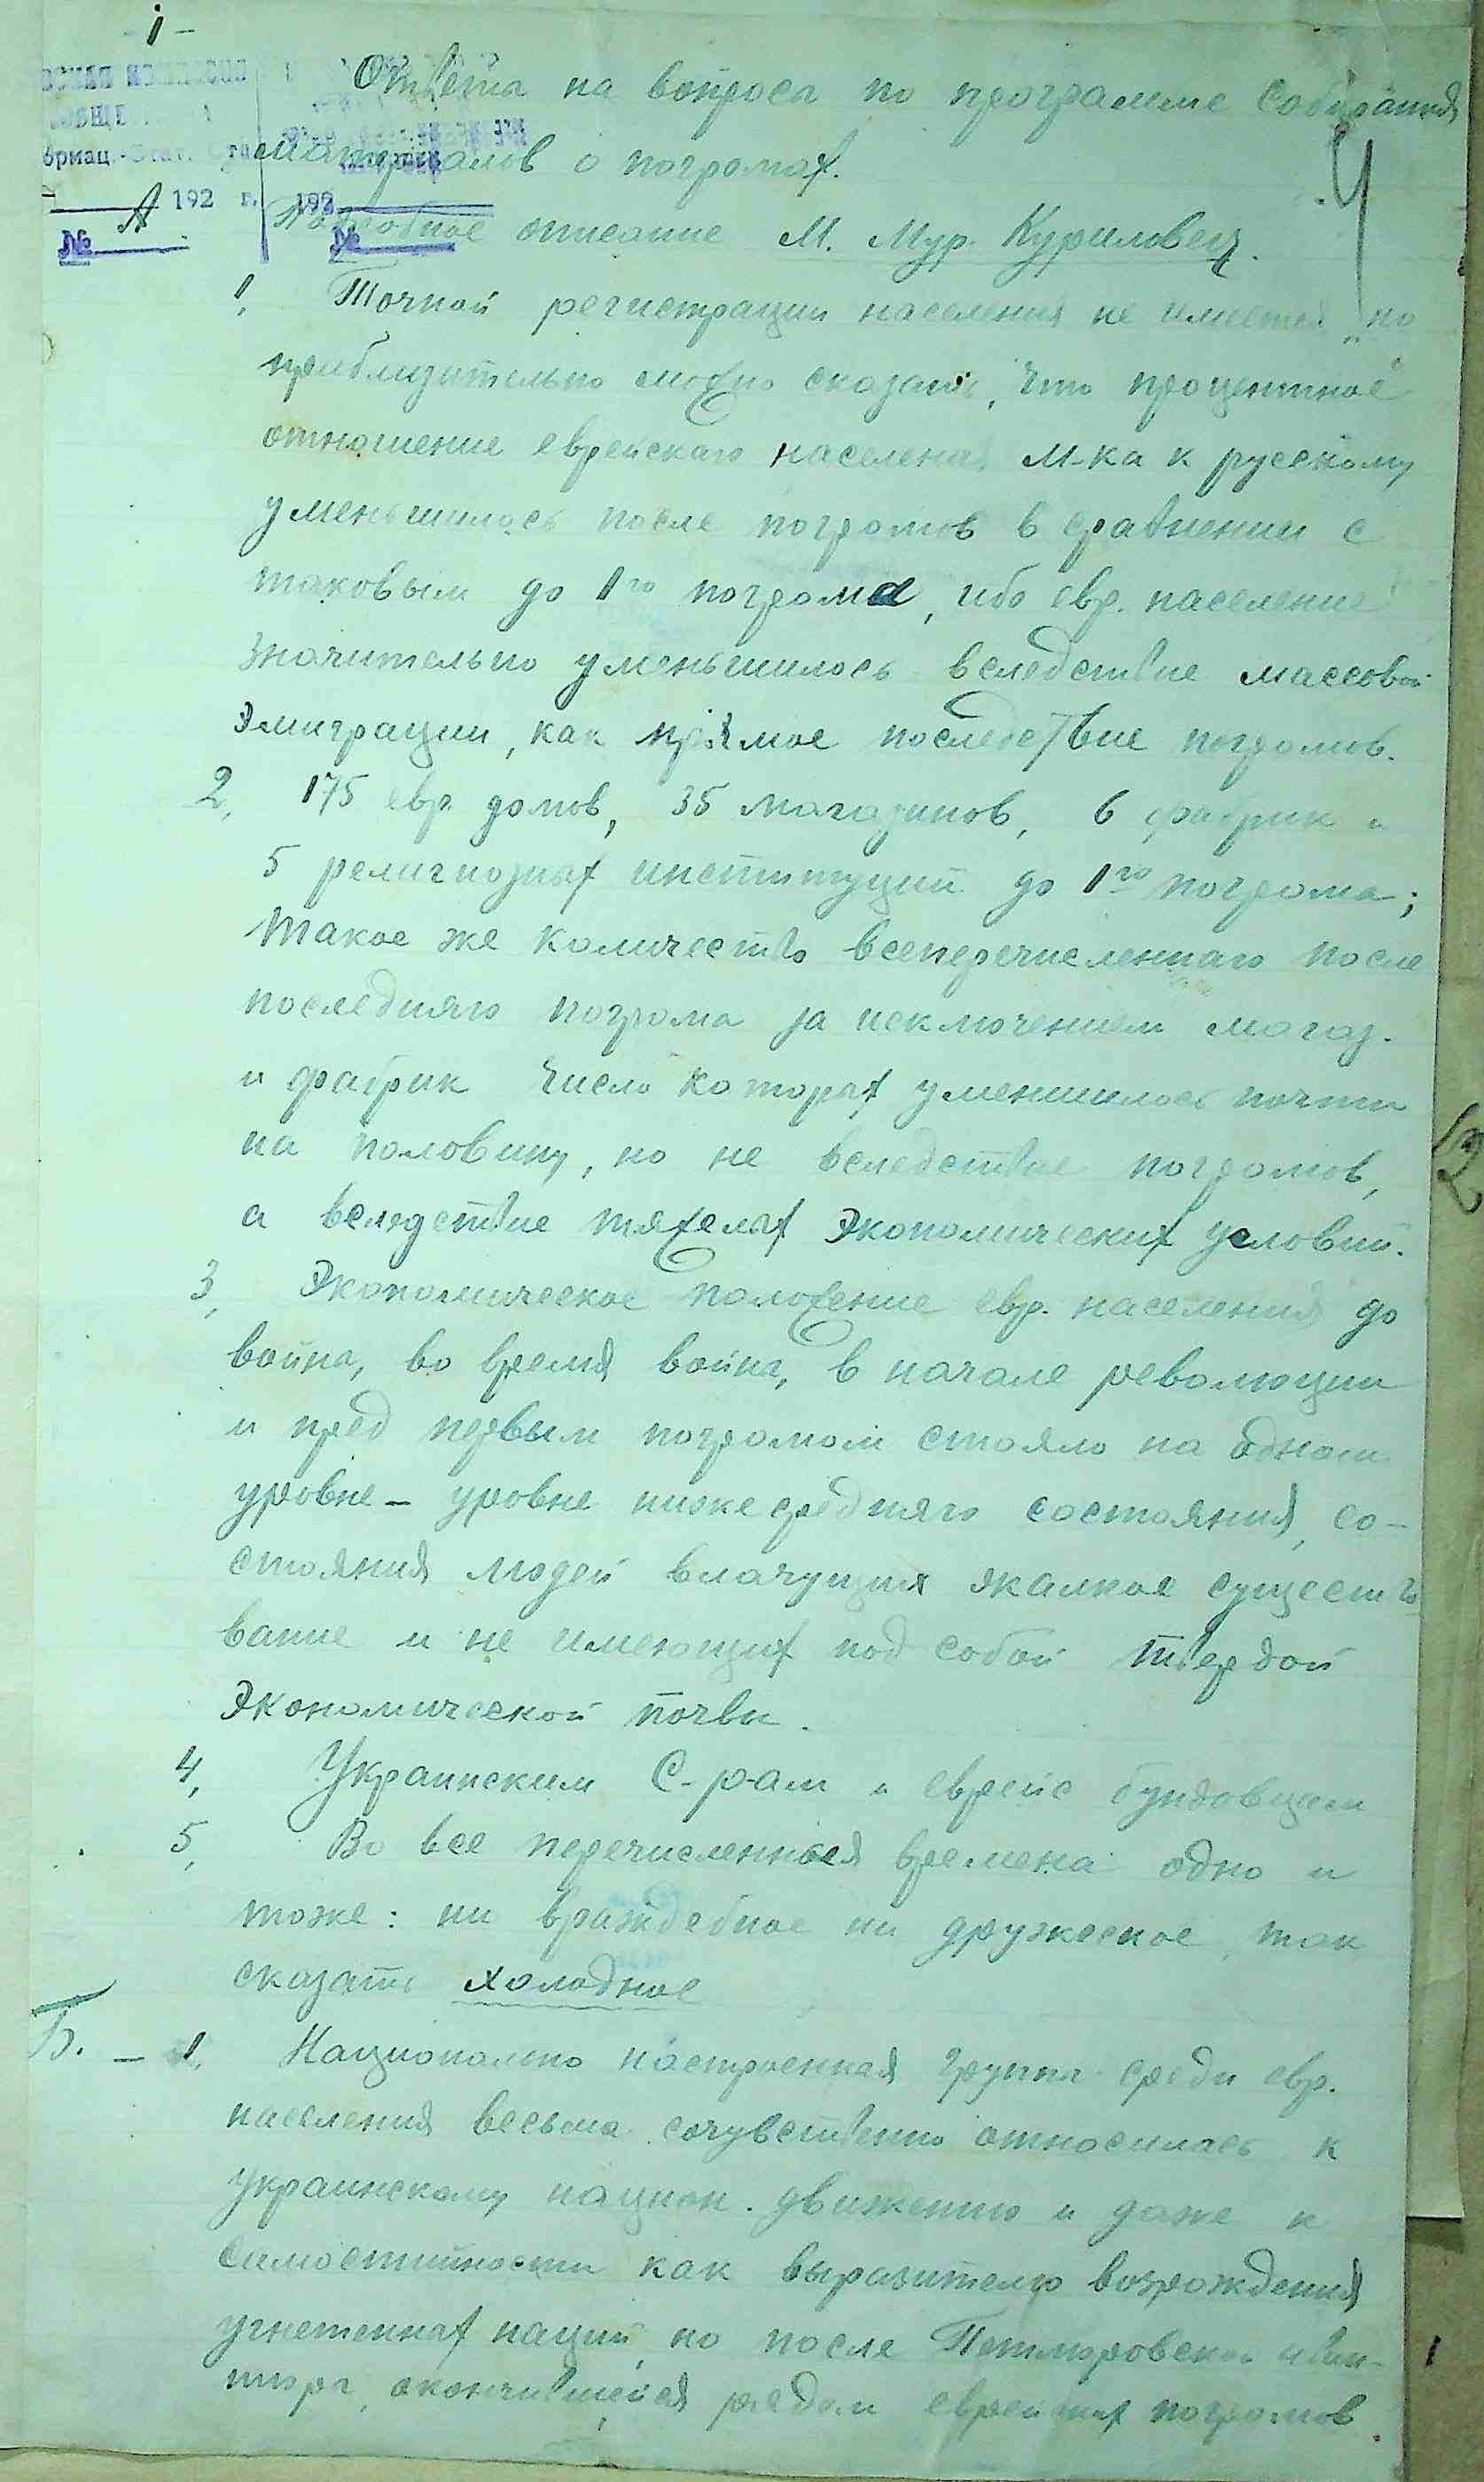 - 1 -
Ответы на вопросы по программе собирания
материалов о погромах.
А 192 г. 192
№ № Подробное описание М. Мур. Куриловец.
1, Точной регистрации населения не имеется, но
приблизительно можно сказать, что процентное
отношение еврейскаго населения м-ка к русскому
уменьшилось после погромов в сравнении с
таковым до 1го погрома, ибо евр. население
значительно уменьшилось вследствие массовой
эмиграции, как прямое последствие погромов.
2, 175 евр. домов, 35 магазинов, 6 фабрик и
5 религиозных институций до 1го погрома;
такое же количество всеперечисленнаго после
последняго погрома за исключением магаз.
и фабрик число которых уменшилось почти
на половину, но не вследствие погромов,
а вследствие тяжелых экономических условий.
3, Экономическое положение евр. населения до
войны, во время войны, в начале революции
и пред первым погромом стояло на одном
уровне - уровне ниже средняго состояния, со-
стояния людей влачущих жалкое существо
вание и не имеющих под собой твердой
экономической почвы.
4, Украинским С-р-ам и еврейс бундовцам
5, Во все перечисленныя времена одно и
тоже: ни враждебное ни дружеское, так
сказать холодное
Б. - 1, Национально настроенная группа среди евр.
населения весьма сочувственно относилась к
украинскому национ. движению и даже к
самостийности как выразителю возрождения
угнетенных наций, но после Петлюровской аван-
тюры, окончившейся рядом еврейских погромов